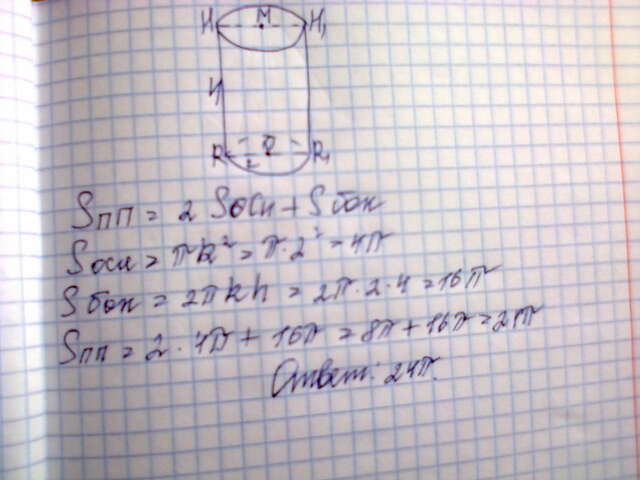 H M H₁
4
R O R₁
2
Sпп = 2 Sосн + Sбок
Sосн = πR² = π·2² = 4π
Sбок = 2πRh = 2π·2·4 = 16π
Sпп = 2·4π + 16π = 8π + 16π = 24π
Ответ: 24π.